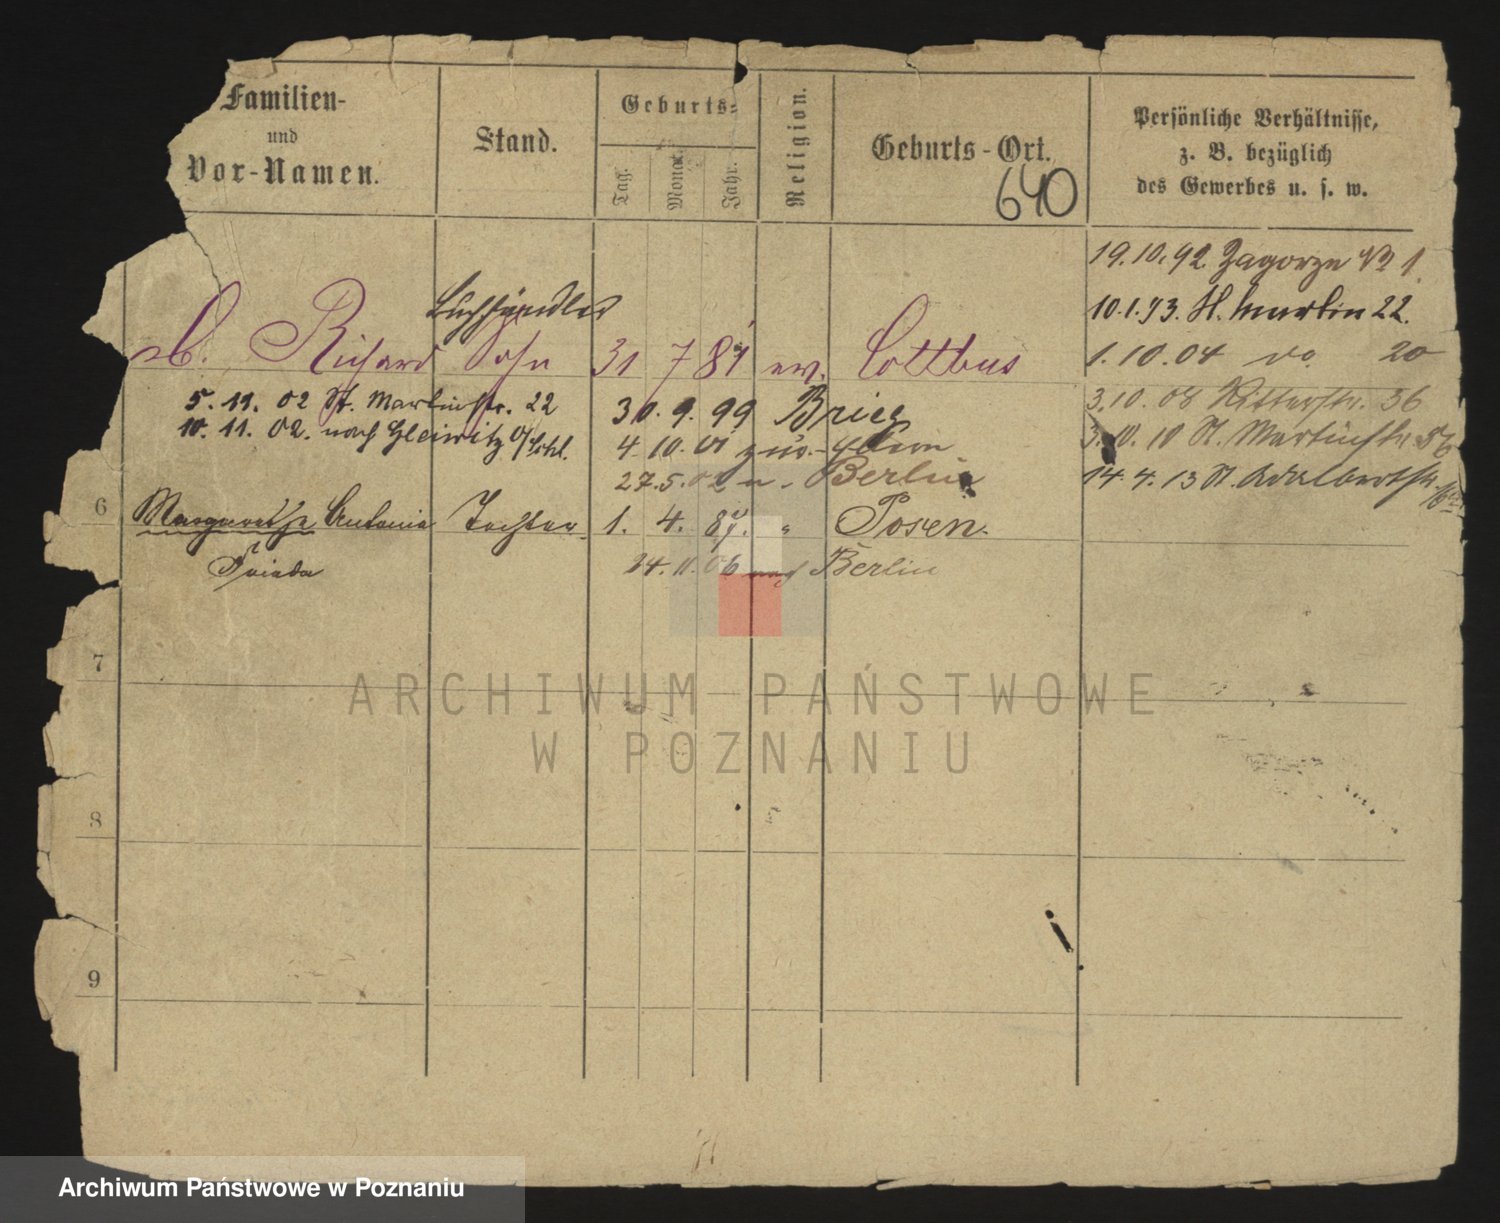 Familien-
und
Vor-Namen.
Stand.
Geburts-
Tag.
Monat.
Jahr.
Religion.
Geburts-Ort.
640
Persönliche Verhältnisse,
z. B. bezüglich
des Gewerbes u. s. w.
19.10.92 Zagorze No 1.
10.1.93. St. Martin 22.
1.10.04 do. 20
3.10.08 Ritterstr. 36
3.10.10 St. Martinstr. 56
14.4.13 St. Adalbertstr.
Buchhändler
Richard Sohn 31 7 81 ev. Cottbus
5.11.02 St. Martinstr. 22
30.9.99 Brieg
10.11.02. nach Gleiwitz O/Schl.
4.10.01 zur.
27.5.02 n. Berlin
6
Margarethe Antonie Tochter 1. 4. 87. " Posen.
Frieda
24.11.06 nach Berlin
7
8
9
ARCHIWUM PAŃSTWOWE
W POZNANIU
Archiwum Państwowe w Poznaniu